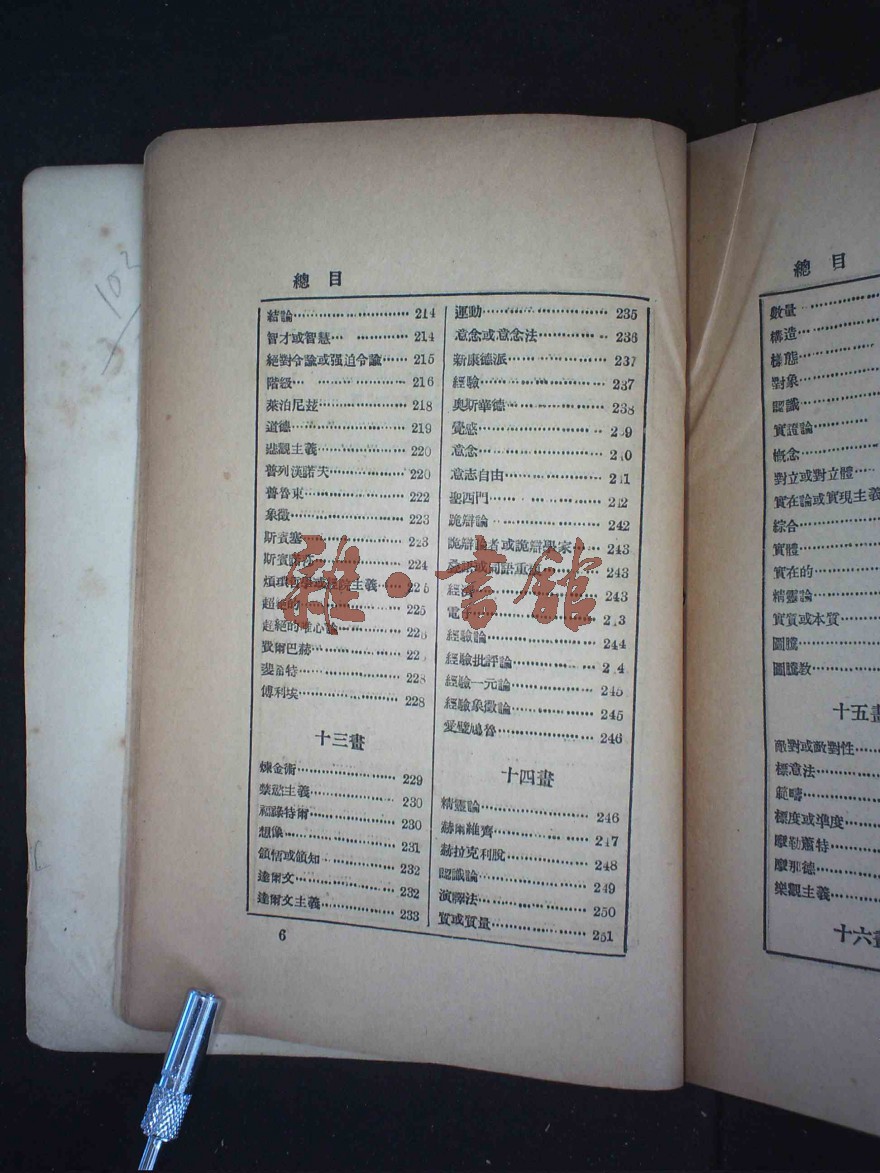 102
總目
結論 214
智才或智慧 214
絕對令論或强迫令論 215
階級 216
萊泊尼茲 218
道德 219
悲觀主義 220
普列漢諾夫 220
普魯東 222
象徵 223
斯賓塞 223
斯賓諾莎 224
煩瑣哲學或經院主義 225
超絕的 225
超絕的唯心論
費爾巴赫
斐希特 228
傅利埃 228
十三畫
煉金術 229
禁慾主義 230
福祿特爾 230
想像 231
領悟或領知 232
達爾文 232
達爾文主義 233
運動 235
意念或意念法 236
新康德派 237
經驗 237
奧斯華德 238
覺感
意念
意志自由
聖西門 242
詭辯論 242
詭辯論者或詭辯學家 243
或同語重複 243
經濟 243
電子
經驗論 244
經驗批評論
經驗一元論 245
經驗象徵論 245
愛璧鳩魯 246
十四畫
精靈論 246
赫爾維齊 247
赫拉克利脫 248
認識論 249
演繹法 250
質或質量 251
6
總目
數量
構造
樣態
對象
認識
實證論
概念
對立或對立體
實在論或實現主義
綜合
實體
實在的
精靈論
實質或本質
圖騰
圖騰教
十五畫
敵對或敵對性
標意法
範疇
標度或準度
摩勒蕭特
摩那德
樂觀主義
十六畫
雜·書館